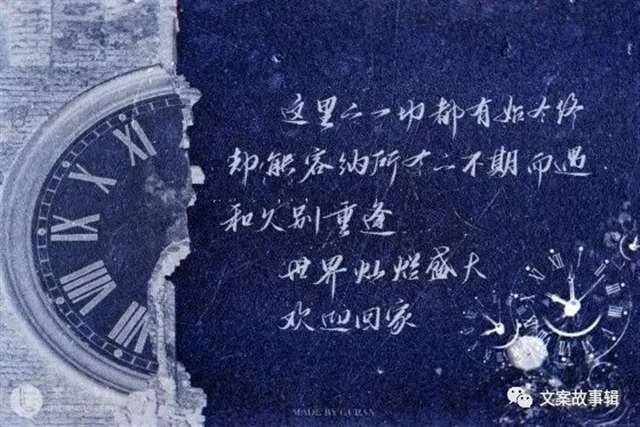 XI
X
IX
VIII
VII
这里的一切都有始有终
却能容纳所有的不期而遇
和久别重逢
世界灿烂盛大
欢迎回家
MADE BY GURAN
文案故事辑